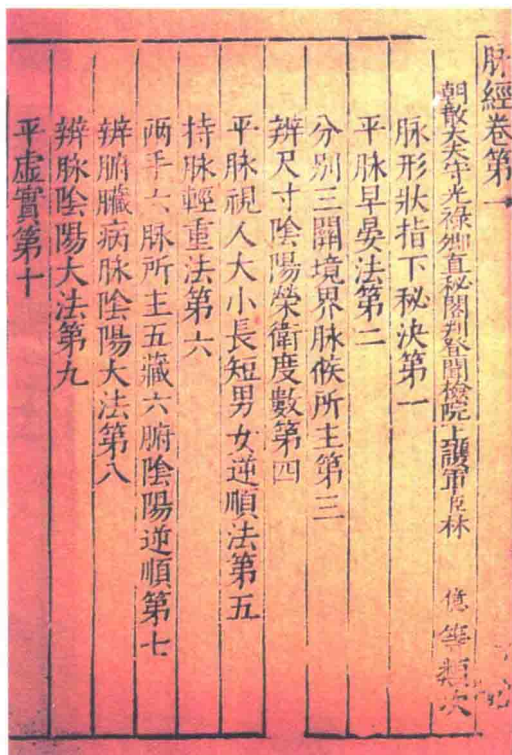 脉經卷第一
朝散大夫守光祿卿直秘閣判登聞檢院上護軍臣林億等類次
脉形狀指下秘决第一
平脉早晏法第二
分别三關境界脉候所主第三
辨尺寸陰陽榮衛度數第四
平脉視人大小長短男女逆順法第五
持脉輕重法第六
兩手六脉所主五藏六腑陰陽逆順第七
辨腑臟病脉陰陽大法第八
辨脉陰陽大法第九
平虛實第十